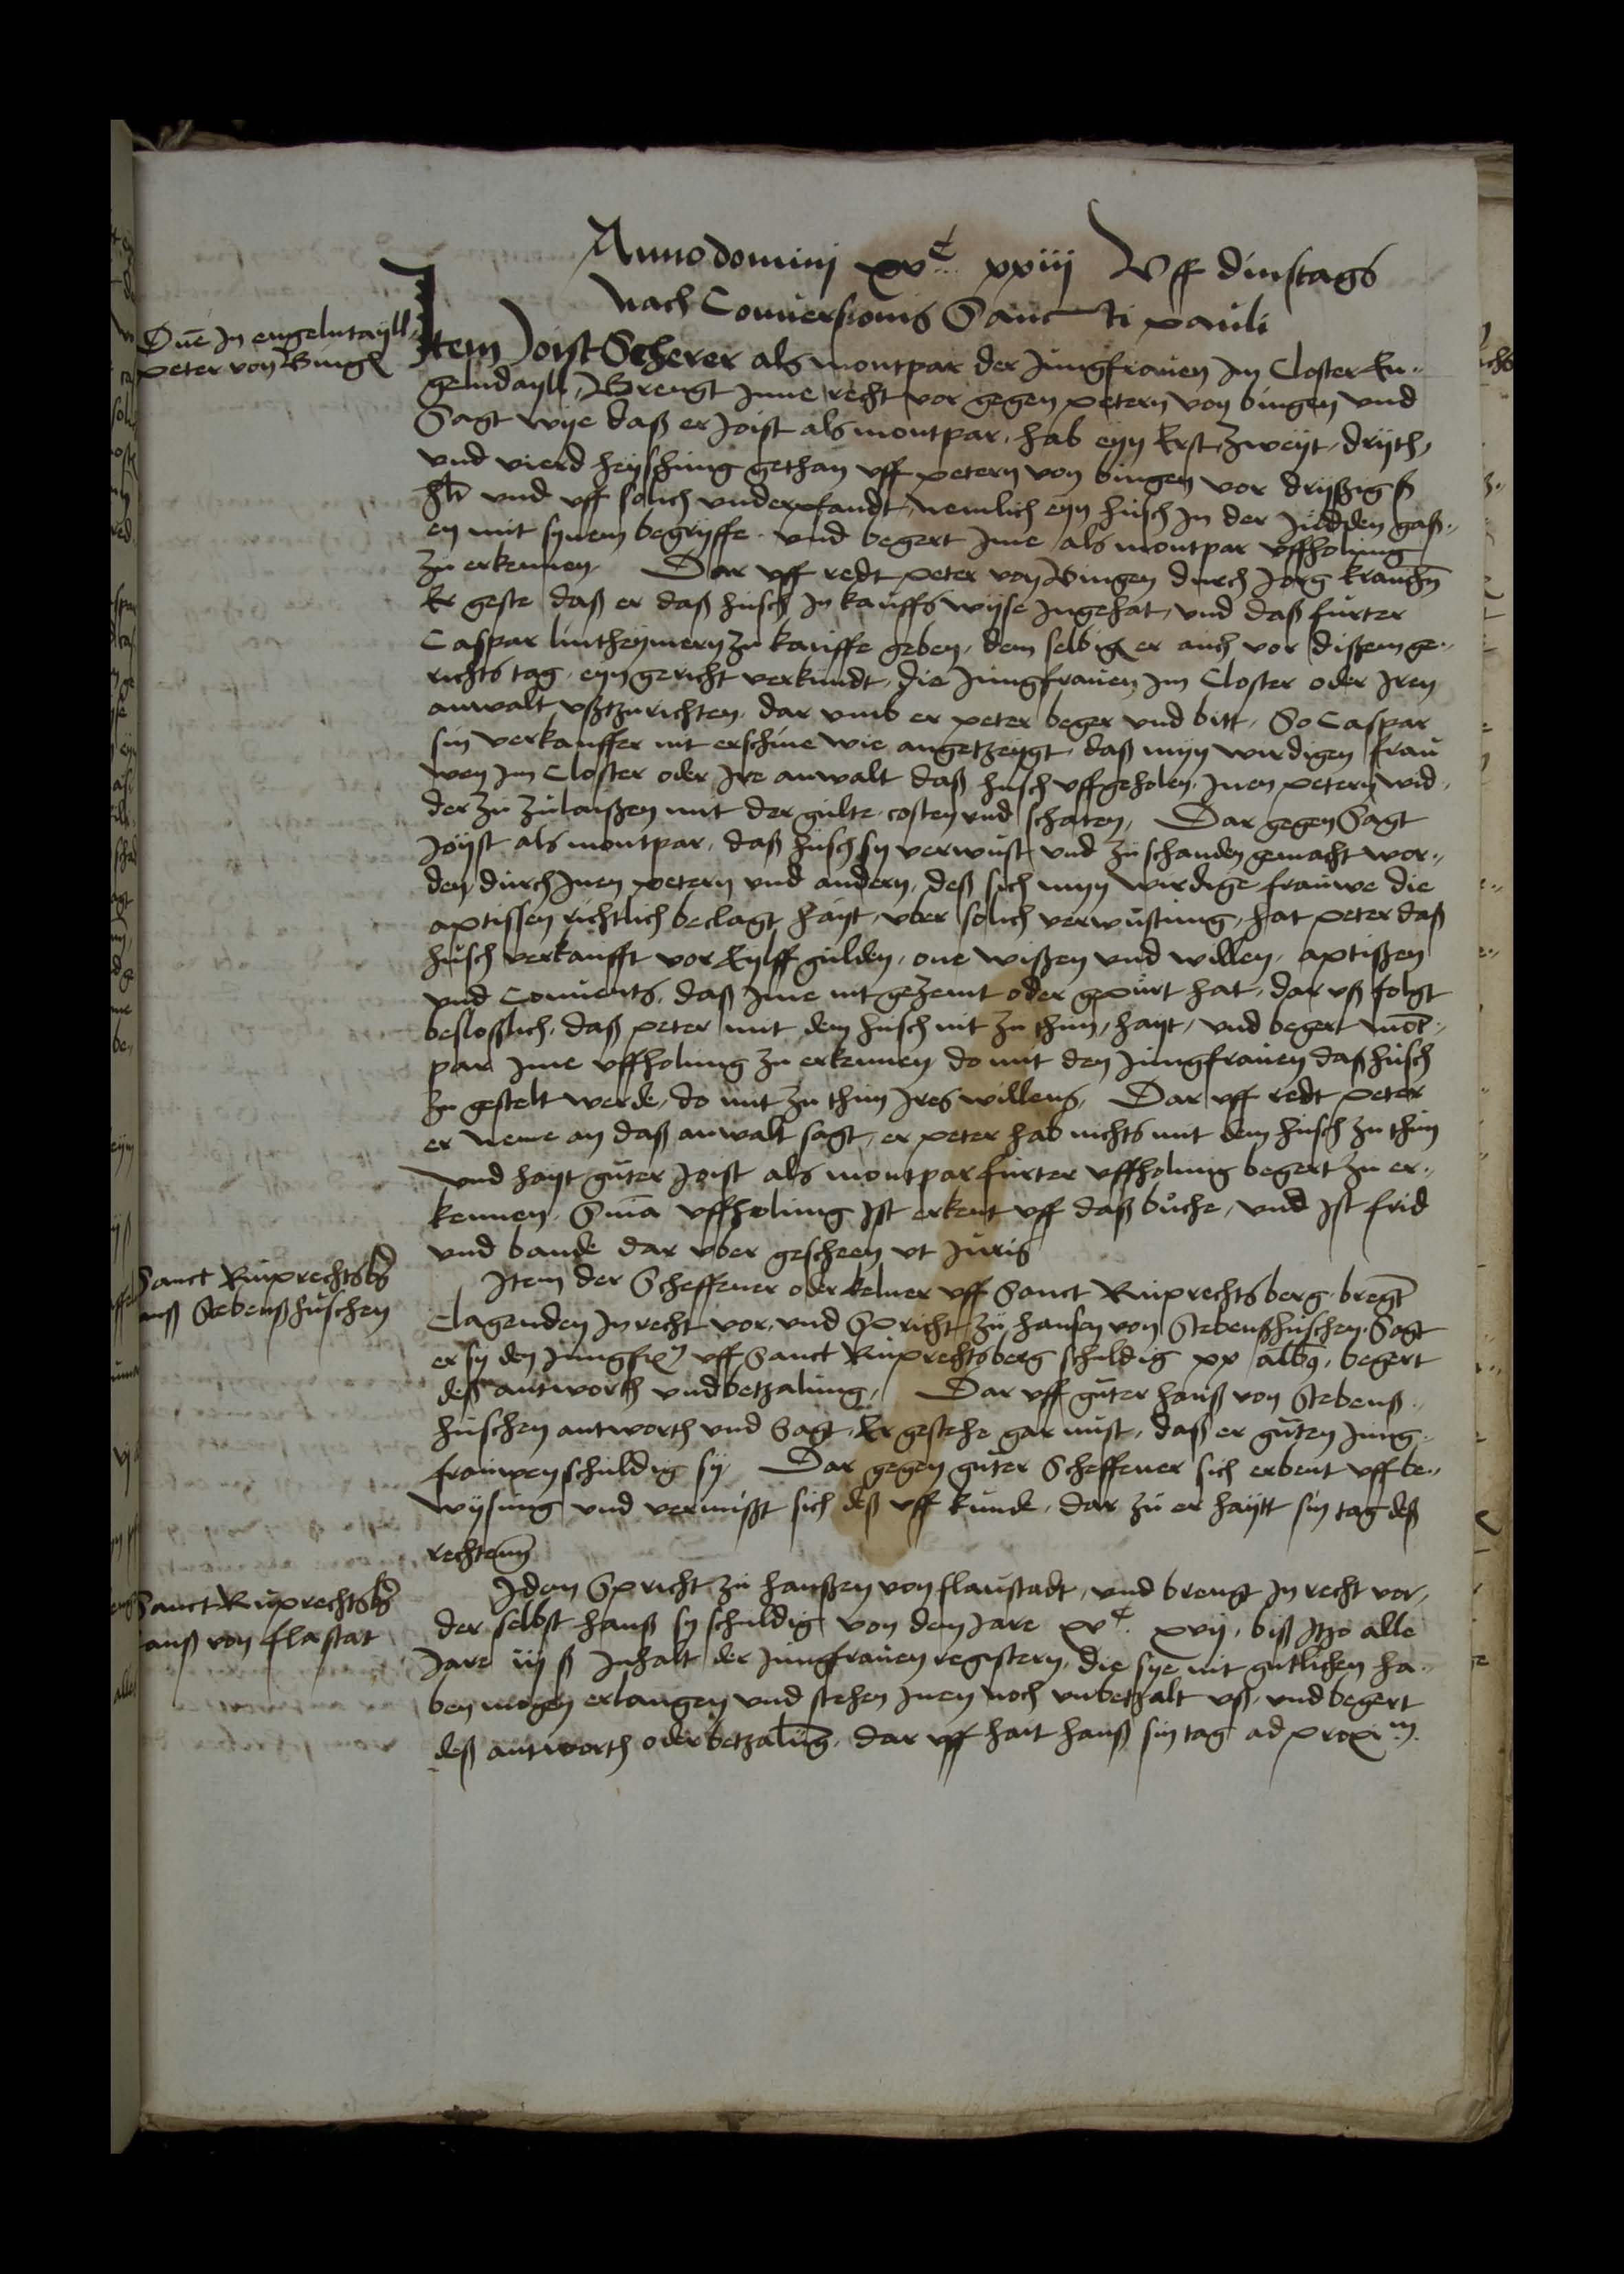 Anno domini xvᶜ xxiii Uff dinstags
nach Conversionis Sancti pauli
Due in engelntayll
peter von Bingen
Item Joist Scherer als montpar der Jungfrauen Im Closter En„
gelndayll, Brengt Inne recht vor gegen petern von bingen und
Sagt wye daß er Joist als montpar, hab eyn Erst, zweyt, dryth,
und vierd heyschung gethan uff petern von bingen vor dryßig ß
hlr und uff solich underpfandt, nemlich eyn husch In der Judden gaß„
en mit synem begryffe. und begert Ime als montpar uffholung
zu erkennen. Dar uff redt peter von Bingen durch Jorg kranchen
Er geste daß er daß husch In kauffs wyse Ingehat, und daß furter
Caspar lintheymern zu kauffe geben, dem selbigen er auch vor dißem ge„
richts tag, eyn gericht verkundt, die Jungfrauen Im Closter oder Iren
anwalt ußtzurichten, dar umb er peter beger und bitt, So Caspar
sin verkauffer nit erschine wie angetzeygt, daß myn wirdigen frau
wen Im Closter oder Ire anwalt daß husch uffgeholen, Inen petern wid„
der zu zulaußen mit der gulte, costen und schaten, Dar gegen Sagt
Joyst als montpar, daß husch sy verwust und zu schanden gemacht wor„
den durch Inen petern und andern, deß sich myn wirdige frauwe die
aptissen richtlich beclagt hayt, uber solich verwustung, hat peter daß
husch verkaufft vor Eylff gulden, one wißen und willen, aptißen
und Convents, daß Ime nit gezemt oder gepurt hat, dar uß folgt
beslosslich, daß peter mit dem husch nit zu thun, hayt, und begert mōt„
par Ime uffholung zu erkennen do mit den Jungfrauen daß husch
zu gestelt werde, do mit zu thun Ires willens, Dar uff redt peter
er neme an daß anwalt sagt, er peter hab nichts mit dem husch zu thun
und hayt guter Joist als montpar furter uffholung begert zu er„
kennen, Snīa uffholung Ist erkent uff daß buche, und Ist frid
und bande dar uber gescheen ut Juris
Sanct Ruprechtsbg
Stebenßhuschen
Item der Scheffener oder kelner uff Sanct Ruprechtsberg bregt
Clagenden In recht vor, und Spricht zu hansen von Stebenßhuschen Sagt
er sy den Jungfr uff Sanct Ruprechtsberg schuldig xx albq, begert
deß antworth und betzalung, Dar uff guter hanß von Stebens„
huschen antworth und Sagt, Er gestehe gar nust, daß er guten Jung
frauwen schuldig sy Dar gegen guter Scheffener sich erbeut uff be„
wysung und vermißt sich deß uff kunde, dar zu er haytt sin tag deß
rechten
Sanct Ruprechtsbg
anß von flastat
Idem Spricht zu hanßen von flanstadt, und brengt In recht vor,
der selbst hanß sy schuldig von dem Jare xvᶜ xvij, biß Itzo alle
Jare iij ß Inhalt der Jungfrauen registern, die sye nit gutlichen ha„
ben mogen erlangen und stehen Inen noch unbetzalt uß, und begert
deß antworth oder betzalūg, dar uff hait hanß sin tag ad proxīm